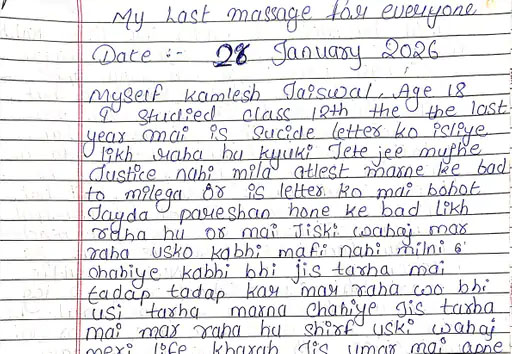 My Last massage for everyone
Date :- 28 January 2026
Myself Kamlesh Jaiswal, Age 18
I studied class 12th the the last
year mai is Sucide letter ko isliye
likh raha hu kyuki Jete jee mujhe
Justice nahi mila atlest marne ke bad
to milega or is letter ko mai bohot
Jayda pareshan hone ke bad likh
raha hu or mai Jiski wahaj mar
raha usko kabhi mafi nahi milni
chahiye kabhi bhi jis tarha mai
tadap tadap kar mar raha wo bhi
usi tarha marna chahiye Jis tarha
mai mar raha hu shirf uski wahaj
meri life kharab Jis umar mai apne